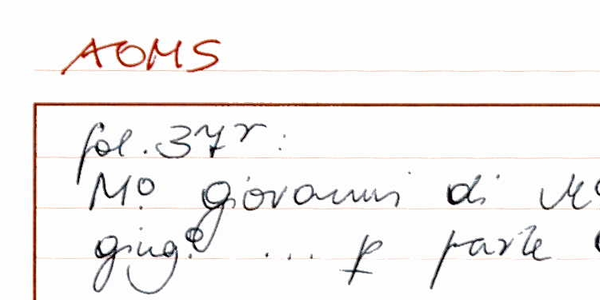 AOMS
fol. 37r:
Mo giovanni di
giugo ... p parte